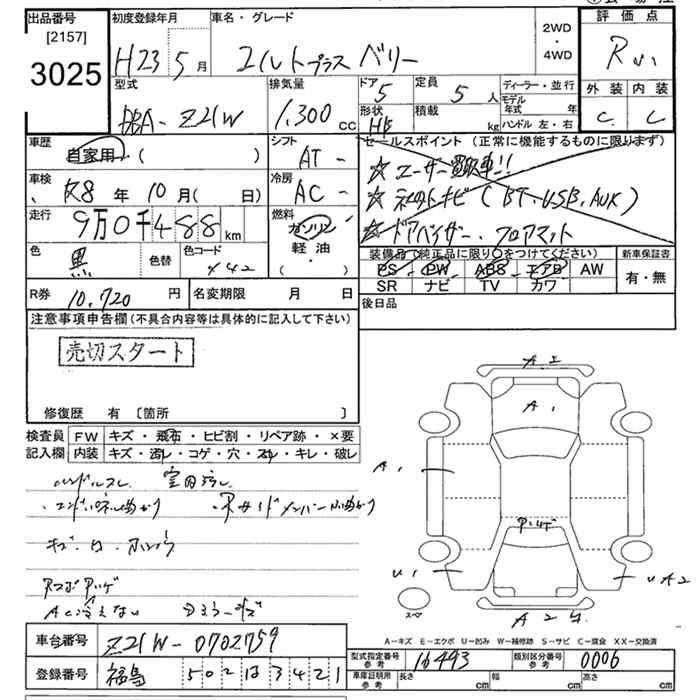 出品番号 初度登録年月 車名・グレード 2WD・4WD 評価点
[2157]
3025 H23 5月 コルトプラス ベリー R
型式 排気量 ドア 5 定員 5人 ディーラー・並行 外装 内装
DBA-Z21W 1,300cc 形状 HB 積載 kg モデル年式 年 C C
ハンドル 左・右
車歴 自家用( ) シフト AT- セールスポイント(正常に機能するものに限ります)
☆ユーザー買取車!!
車検 R8年10月( 日) 冷房 AC- ☆ネットナビ(BT、USB、AUX)
走行 9万0千488km 燃料 ガソリン 軽油 ( ・ ) ☆ドアバイザー、フロアマット
色 黒 色替 色コード X42 装備品で純正品に限り○をつけてください 新車保証書
PS PW ABS エアB AW 有・無
SR ナビ TV カワ
R券 10,720円 名変期限 月 日 後日品
注意事項申告欄(不具合内容等は具体的に記入して下さい)
売切スタート
修復歴 有 〔箇所 〕
検査員 FW キズ・飛石・ヒビ割・リペア跡・×要
記入欄 内装 キズ・汚れ・コゲ・穴・スレ・キレ・破レ
ハンドルスレ 室内汚し
・エンドパネル曲がり ・Rサイドメンバー小曲がり
キズ・凹・
RコボRハゲ
ACヒえない
A2
A1
A1
Rハゲ
U1
UA2
スペ
A-キズ E-エクボ U-凹み W-補修跡 S-サビ C-腐食 XX-交換済
車台番号 Z21W-0702759 型式指定番号 参考 16493 類別区分番号 参考 0006
登録番号 福島 502 は 3421 車庫証明用 参考 長さ cm 幅 cm 高さ cm